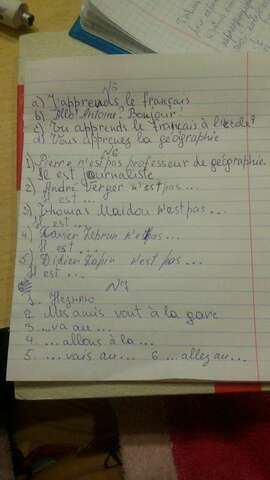 №5
a) J'apprends le français
b) Allo Antoine. Bonjour
c) Tu apprends le français à l'école?
d) Vous apprenez la géographie
№6
1) Pierre n'est pas professeur de géographie.
Il est journaliste
2) André Verger n'est pas ...
3) Thomas Maidou n'est pas ...
Il est ...
4) Xavier Lebrun n'est pas ...
Il est ...
5) Didier Lapin n'est pas ...
Il est ...
№7
1.
2. Mes amis vont à la gare
3 ...va au ...
4. ... allons à la ...
5. ... vais au ... 6. ... allez au ...